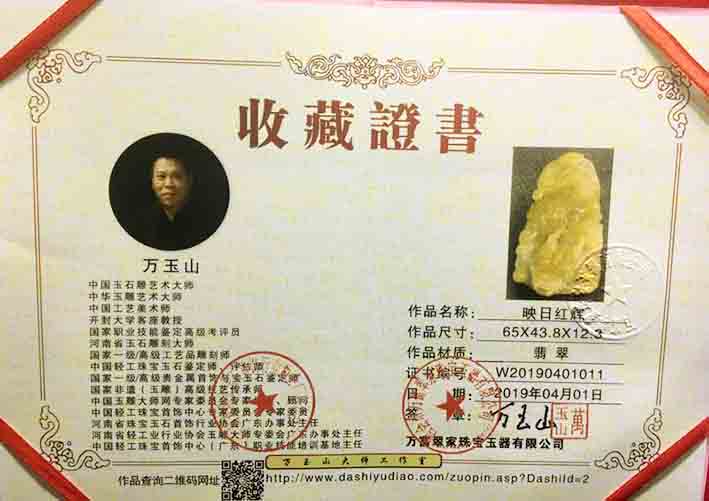 收藏證書
万玉山
中国玉石雕艺术大师
中华玉雕艺术大师
中国工艺美术师
开封大学客座教授
国家职业技能鉴定高级考评员
河南省玉石雕刻大师
国家一级/高级工艺品雕刻师
中国轻工珠宝玉石鉴定师、评估师
国家一级/高级贵金属首饰与宝玉石鉴定师
国家非遗(玉雕)高级技艺传承师
中国玉雕大师网专家委员会专家 顾问
中国轻工珠宝首饰中心专家委员 专家委员
河南省珠宝玉石首饰行业协会广东办事处主任
河南省轻工业行业协会玉雕大师专委会广东办事处主任
中国轻工珠宝首饰中心(广东)职业技能培训基地主任
作品名称: 映日红辉
作品尺寸: 65X43.8X12.3
作品材质: 翡翠
证书编号: W20190401011
日期: 2019年04月01日
签章: 万玉山
萬玉山
万富翠家珠宝玉器有限公司
万玉山大师工作室
作品查询二维码网址
http://www.dashiyudiao.com/zuopin.asp?DashiId=2